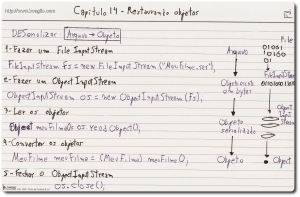 Capitulo 14 - Restaurando objetos
DESerializar Arquivo → Objeto
1 - Fazer um File Input Stream
FileInputStream fs = new FileInputStream ("MeuFilme.ser");
2 - Fazer um Object Input Stream
ObjectInputStream os = new ObjectInputStream (fs);
3 - Ler os objetos
Object meuFilmeO = os.readObject();
4 - Converter os objetos
MeuFilme meuFilme = (MeuFilme) meuFilmeO;
5 - Fechar o Object Input Stream
os.close();
Arquivo
Objeto em bytes
Objeto serializado
Objeto
File
01001
Object
Input
Stream
Objeto